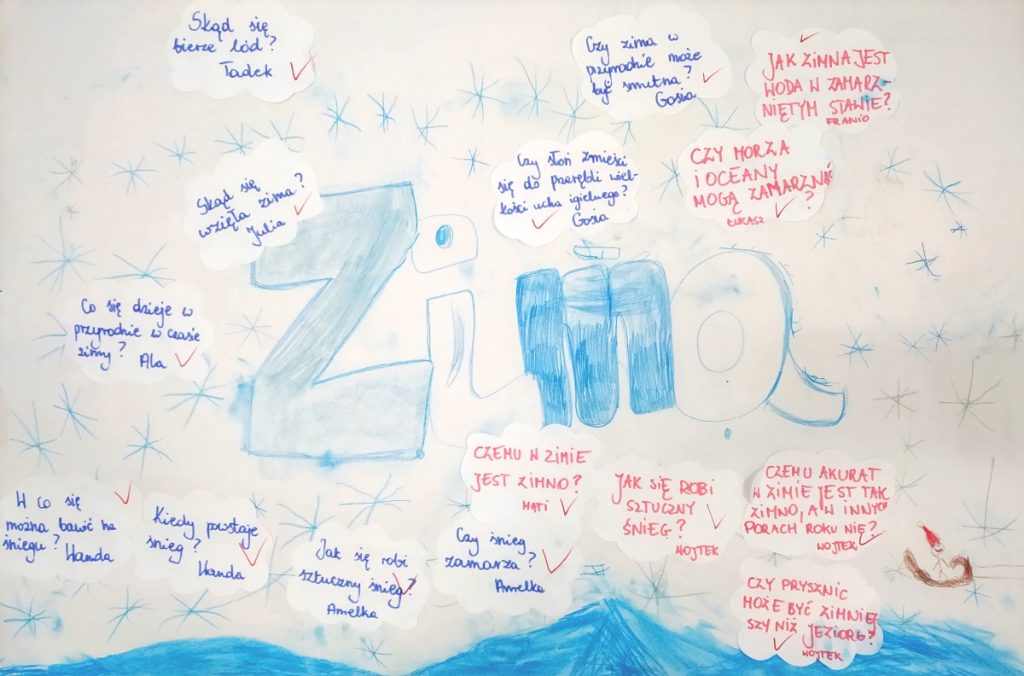 Skąd się
bierze lód?
Tadek
Czy zima w
przyrodnie może
być smutna?
Gosia
JAK ZIMNA JEST
WODA W ZAMARZ-
NIĘTYM STAWIE?
FRANIO
Skąd się
wzięła zima?
Julia
Czy słoń zmieści
się do przerębli wiel-
kości ucha igielnego?
Gosia
CZY MORZA
I OCEANY
MOGĄ ZAMARZNĄĆ
?
ŁUKASZ
Zima
Co się dzieje w
przyrodnie w czasie
zimy?
Ala
W co się
można bawić na
śniegu? Wanda
Kiedy powstaje
śnieg?
Wanda
Jak się robi
sztuczny śnieg?
Amelka
Czy śnieg
zamarza?
Amelka
CZEMU W ZIMIE
JEST ZIMNO?
MATI
JAK SIĘ ROBI
SZTUCZNY
ŚNIEG?
WOJTEK
CZEMU AKURAT
W ZIMIE JEST TAK
ZIMNO, A W INNYCH
PORACH ROKU NIE?
WOJTEK
CZY PRYSZNIC
MOŻE BYĆ ZIMNIEJ
SZY NIŻ JEZIORO?
WOJTEK